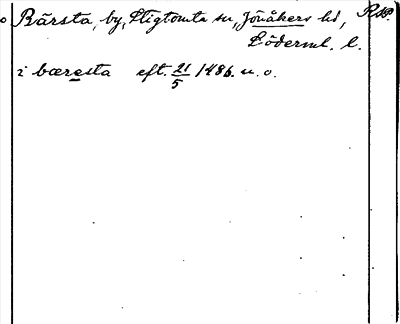 Bärsta, by, Stigtomta sn, Jönåkers hd,
Söderml. l.
i bæresta eft. 21/5 1486. u. o.